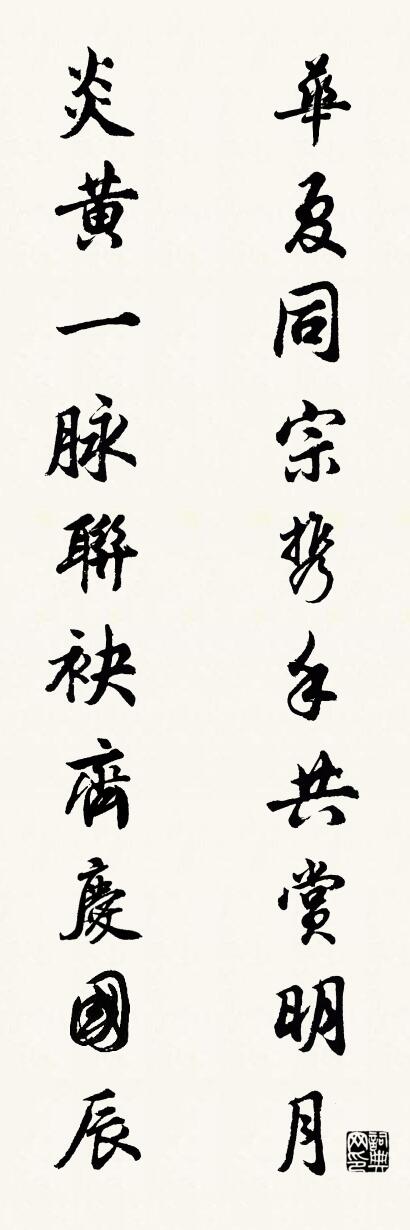 華夏同宗携手共賞明月
炎黄一脉聯袂齊慶國辰
詞典网印